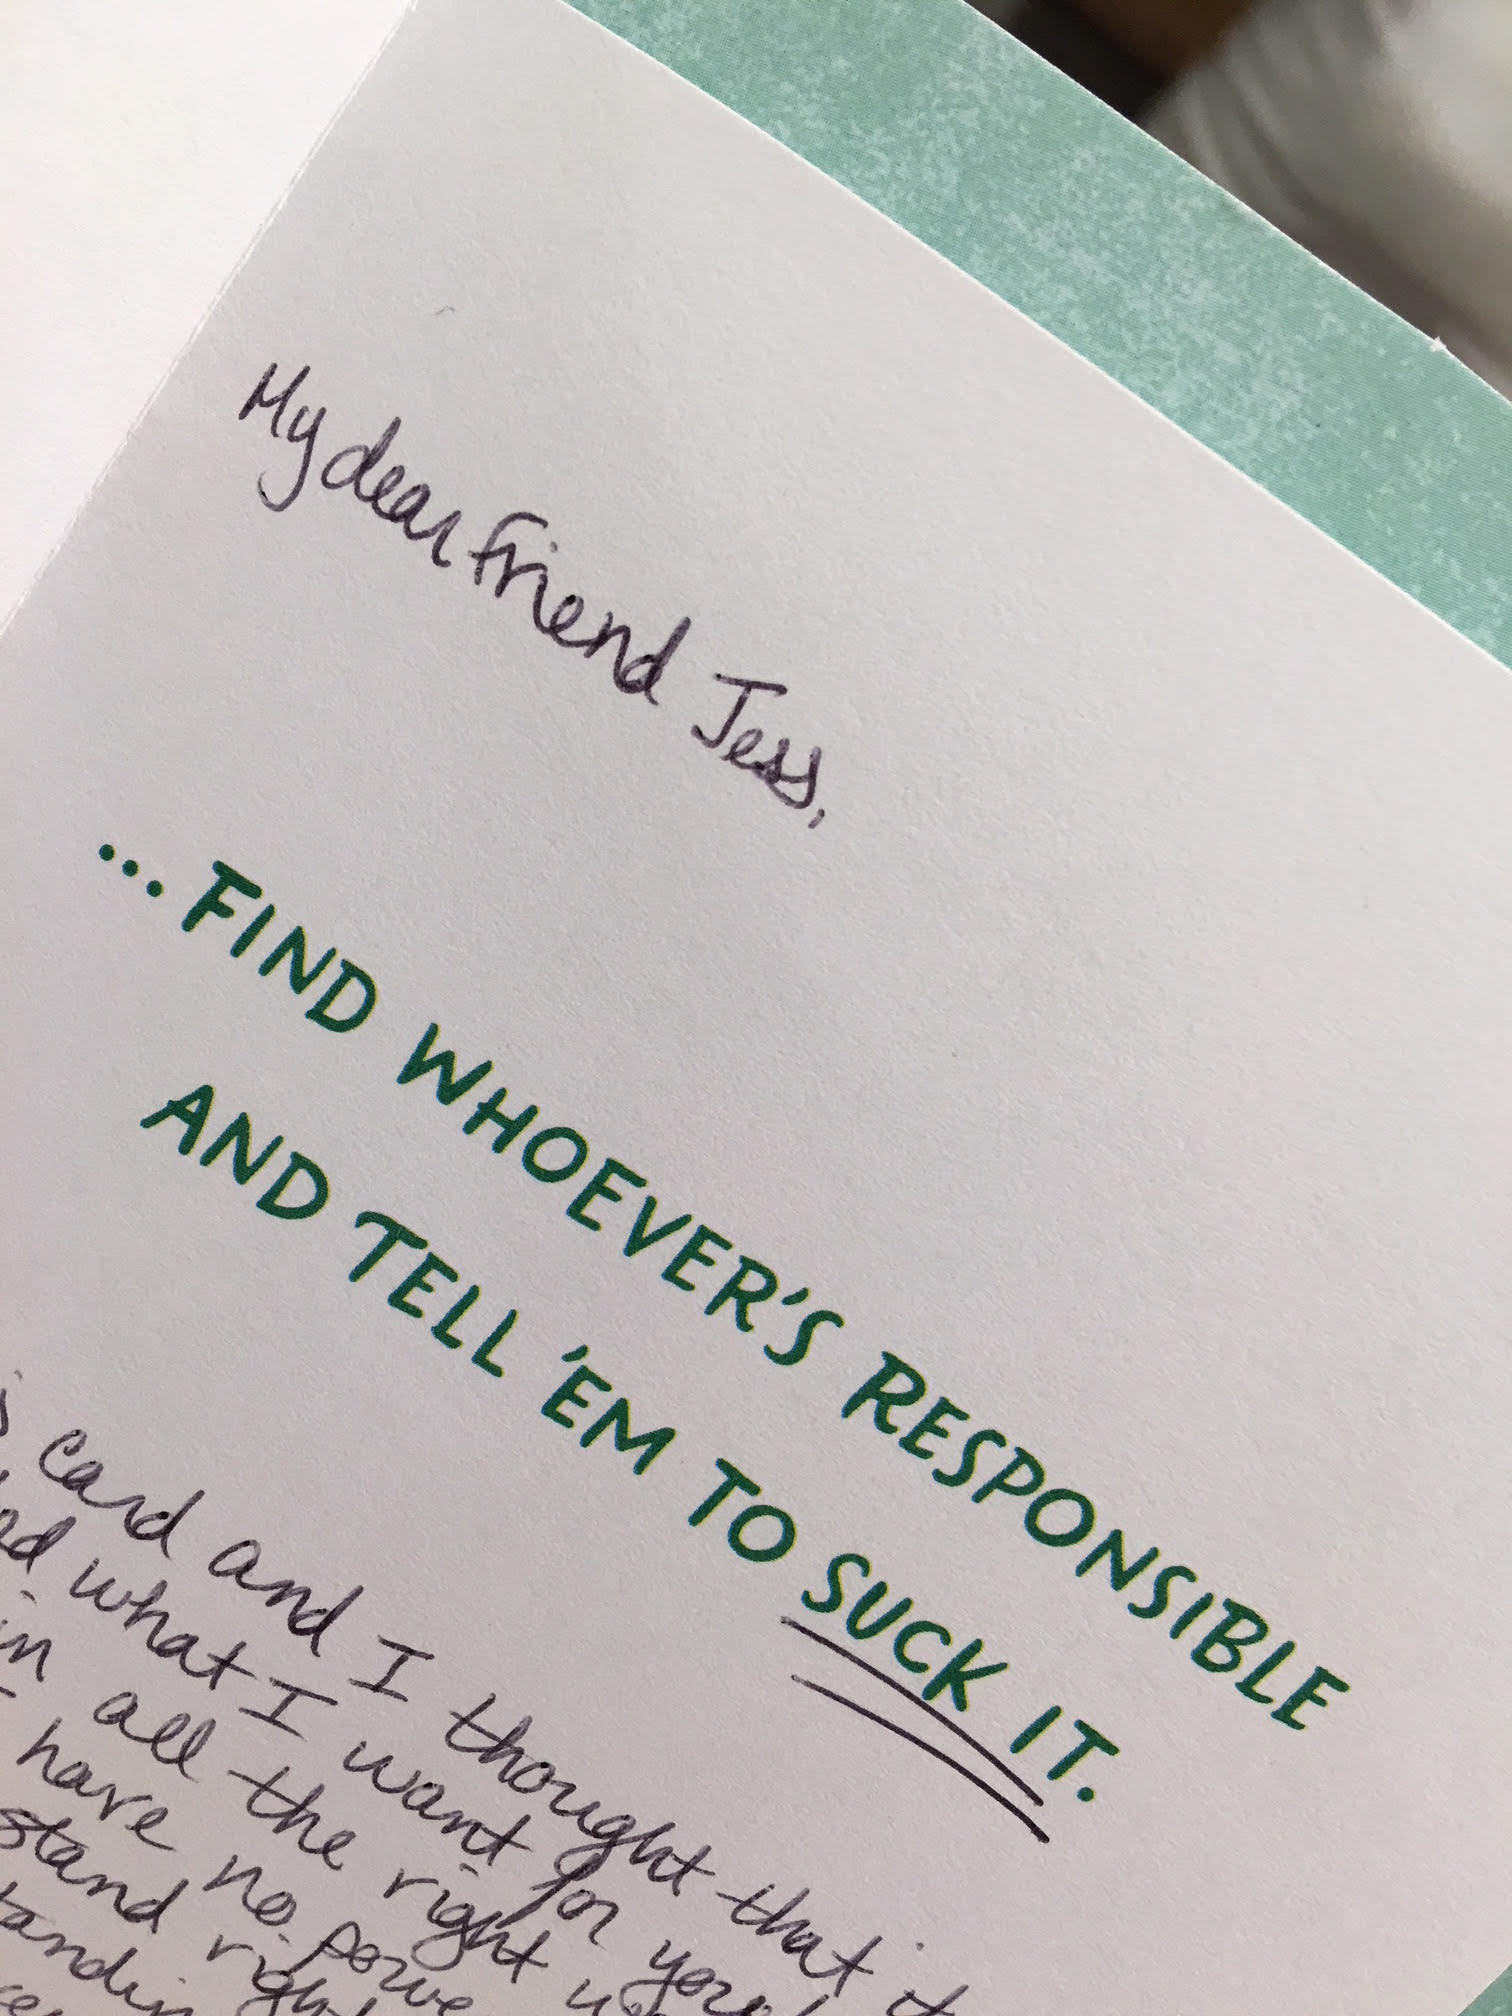 My dear friend Jess,
...FIND WHOEVER'S RESPONSIBLE
AND TELL 'EM TO SUCK IT.
card and I thought that it
what I want for you
in all the right
have no
stand right